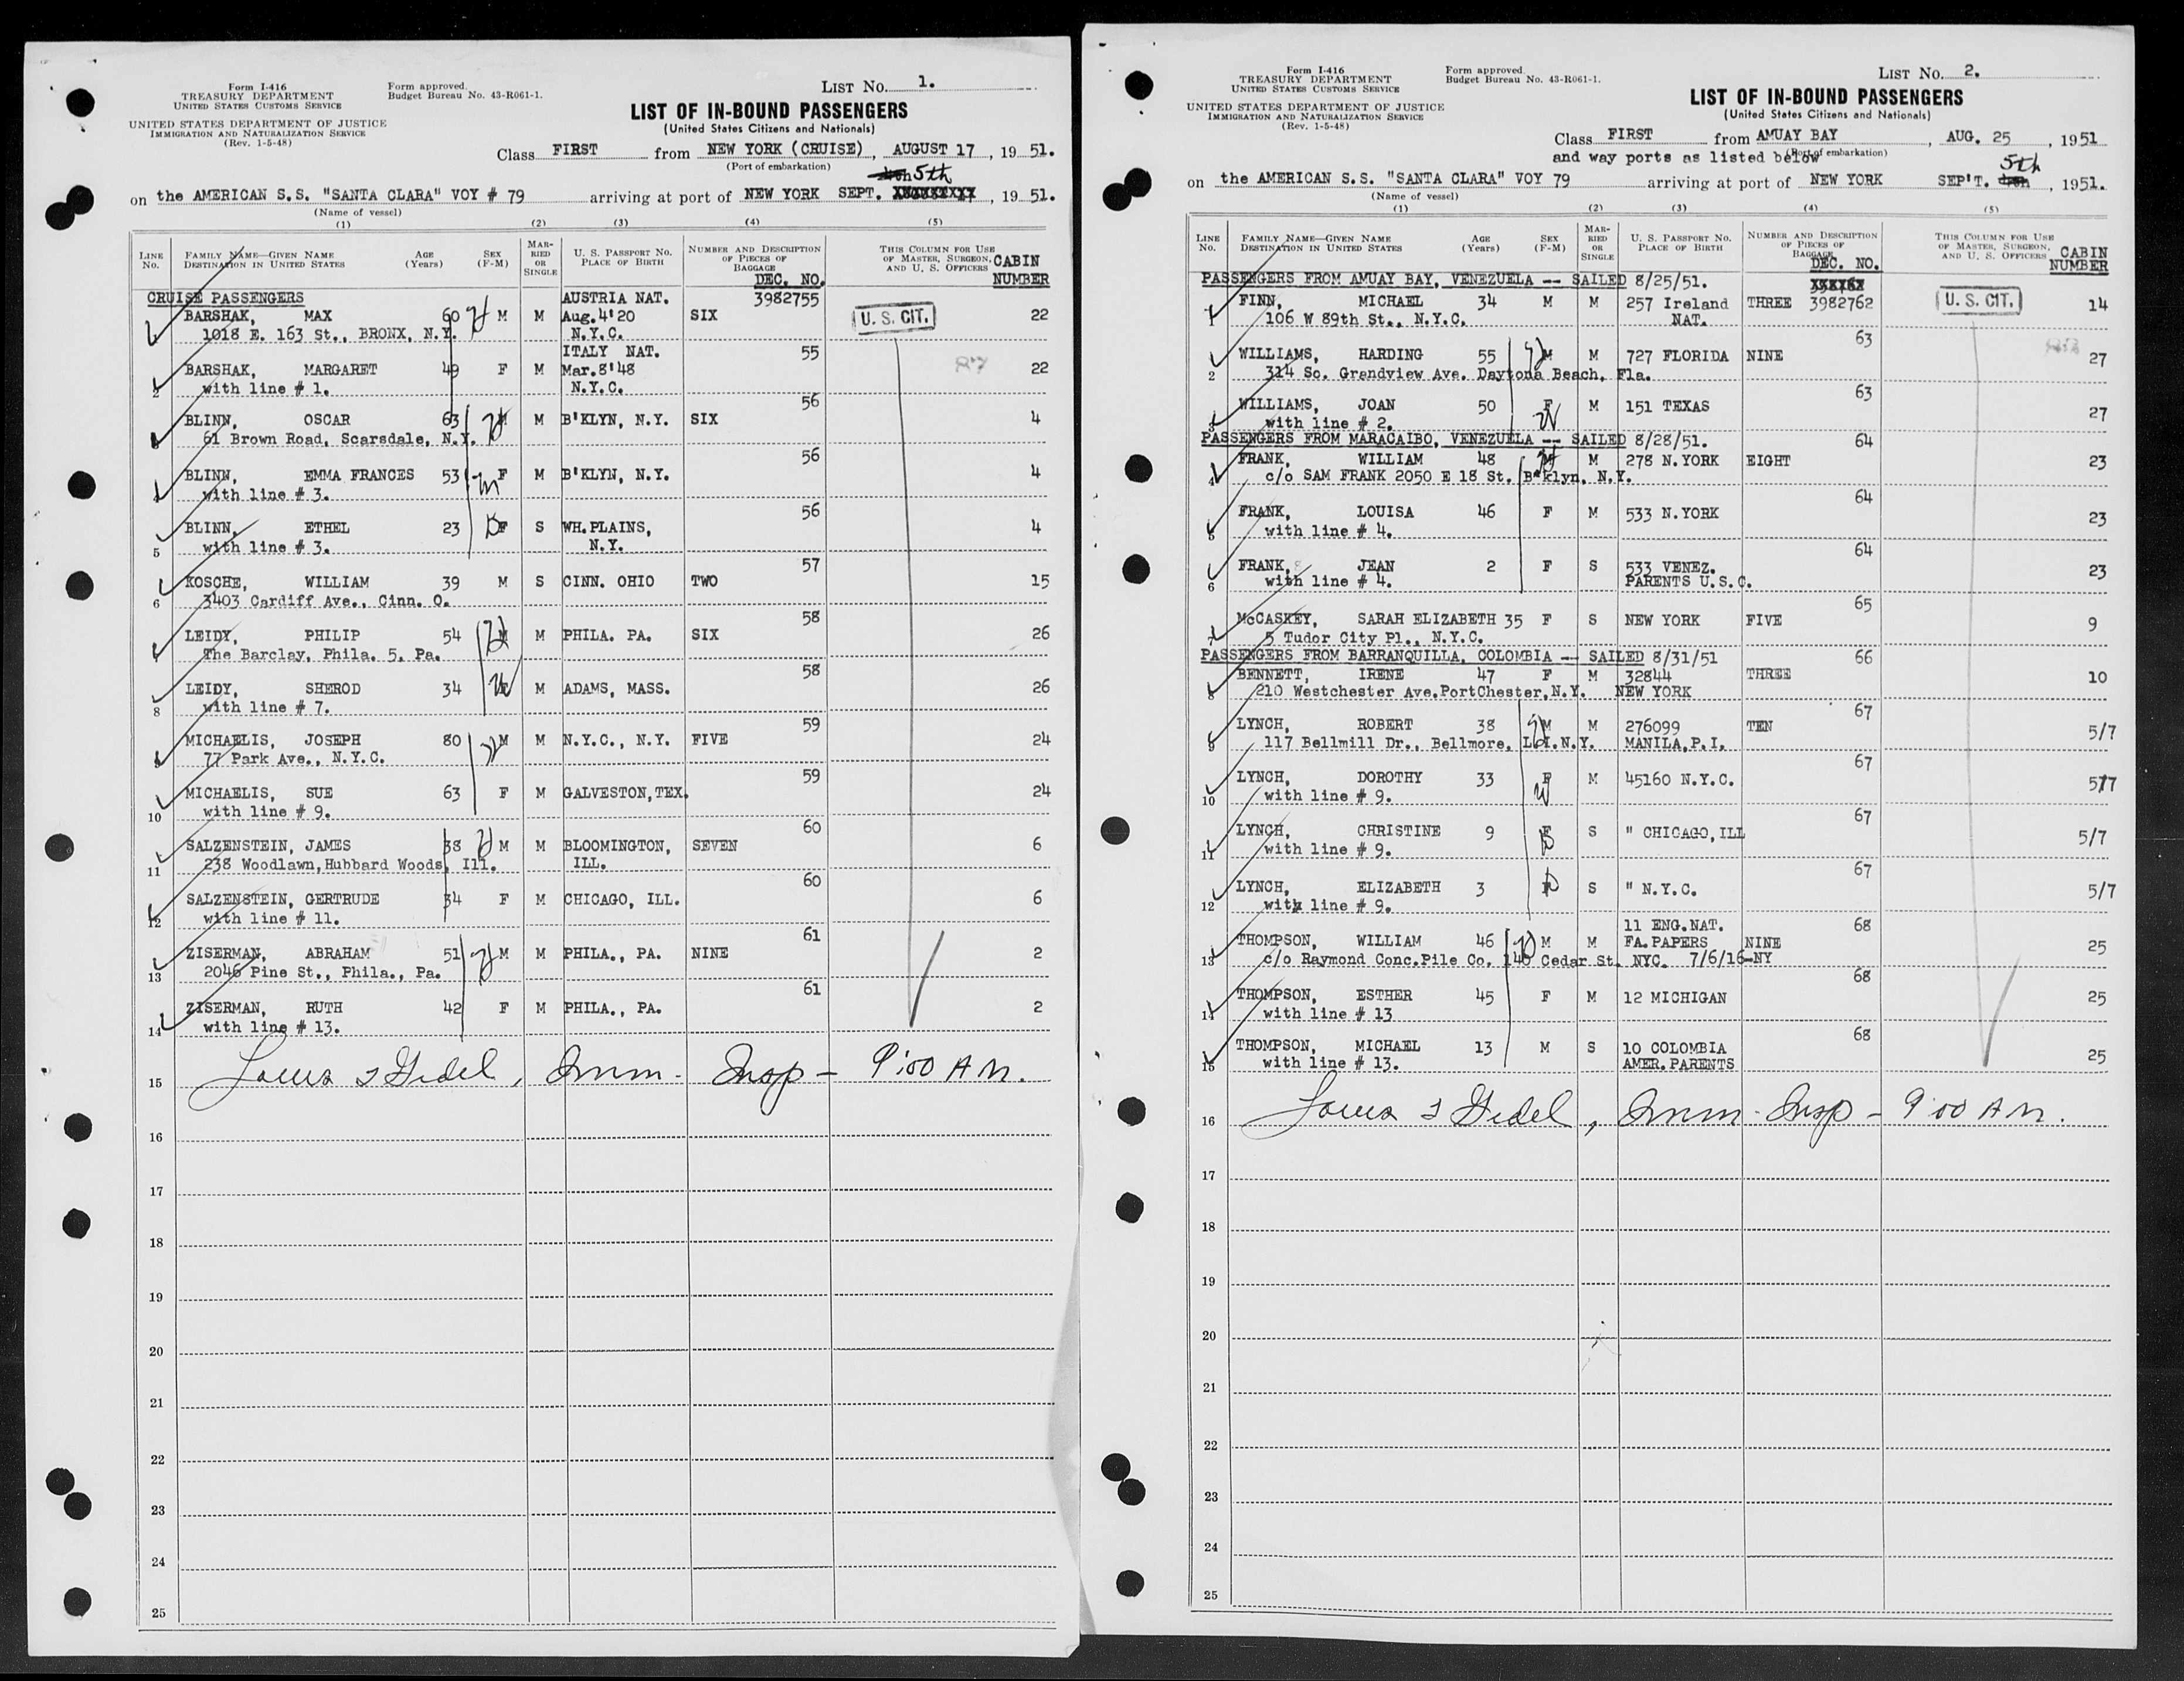 Form I-416
TREASURY DEPARTMENT
UNITED STATES CUSTOMS SERVICE
UNITED STATES DEPARTMENT OF JUSTICE
IMMIGRATION AND NATURALIZATION SERVICE
(Rev. 1-5-48)
Form approved.
Budget Bureau No. 43-R061-1.
LIST No. 1.
LIST OF IN-BOUND PASSENGERS
(United States Citizens and Nationals)
Class FIRST from NEW YORK (CRUISE), AUGUST 17, 1951.
(Port of embarkation)
5th
on the AMERICAN S.S. "SANTA CLARA" VOY # 79 arriving at port of NEW YORK SEPT. XXXXXXXXX, 1951.
(Name of vessel)
(1) (2) (3) (4) (5)
LINE No. FAMILY NAME—GIVEN NAME DESTINATION IN UNITED STATES AGE (Years) SEX (F-M) MARRIED OR SINGLE U. S. PASSPORT No. PLACE OF BIRTH NUMBER AND DESCRIPTION OF PIECES OF BAGGAGE DEC. NO. THIS COLUMN FOR USE OF MASTER, SURGEON, AND U. S. OFFICERS CABIN NUMBER
CRUISE PASSENGERS AUSTRIA NAT. 3982755
BARSHAK, MAX 60 M M Aug.4'20 SIX U. S. CIT. 22
1018 E. 163 St., BRONX, N.Y. N.Y.C.
ITALY NAT. 55
BARSHAK, MARGARET 49 F M Mar.8'48 22
2 with line # 1. N.Y.C.
56
BLINN, OSCAR 63 M M B'KLYN, N.Y. SIX 4
61 Brown Road, Scarsdale, N.Y.
56
BLINN, EMMA FRANCES 53 F M B'KLYN, N.Y. 4
with line # 3.
56
BLINN, ETHEL 23 F S WH.PLAINS, 4
5 with line # 3. N.Y.
57
KOSCHE, WILLIAM 39 M S CINN. OHIO TWO 15
6 3403 Cardiff Ave., Cinn. O.
58
LEIDY, PHILIP 54 M M PHILA. PA. SIX 26
The Barclay, Phila. 5, Pa.
58
LEIDY, SHEROD 34 M ADAMS, MASS. 26
8 with line # 7.
59
MICHAELIS, JOSEPH 80 M M N.Y.C., N.Y. FIVE 24
77 Park Ave., N.Y.C.
59
MICHAELIS, SUE 63 F M GALVESTON,TEX. 24
10 with line # 9.
60
SALZENSTEIN, JAMES 38 M M BLOOMINGTON, SEVEN 6
11 238 Woodlawn,Hubbard Woods, Ill. ILL.
60
SALZENSTEIN, GERTRUDE 34 F M CHICAGO, ILL. 6
12 with line # 11.
61
ZISERMAN, ABRAHAM 51 M M PHILA., PA. NINE 2
13 2046 Pine St., Phila., Pa.
61
ZISERMAN, RUTH 42 F M PHILA., PA. 2
14 with line # 13.
15 Imm. Insp - 9:00 AM.
16
17
18
19
20
21
22
23
24
25
Form I-416
TREASURY DEPARTMENT
UNITED STATES CUSTOMS SERVICE
UNITED STATES DEPARTMENT OF JUSTICE
IMMIGRATION AND NATURALIZATION SERVICE
(Rev. 1-5-48)
Form approved.
Budget Bureau No. 43-R061-1.
LIST No. 2.
LIST OF IN-BOUND PASSENGERS
(United States Citizens and Nationals)
Class FIRST from AMUAY BAY, AUG. 25, 1951
and way ports as listed below (Port of embarkation)
5th
on the AMERICAN S.S. "SANTA CLARA" VOY 79 arriving at port of NEW YORK SEP'T., 1951.
(Name of vessel)
(1) (2) (3) (4) (5)
LINE No. FAMILY NAME—GIVEN NAME DESTINATION IN UNITED STATES AGE (Years) SEX (F-M) MARRIED OR SINGLE U. S. PASSPORT No. PLACE OF BIRTH NUMBER AND DESCRIPTION OF PIECES OF BAGGAGE DEC. NO. THIS COLUMN FOR USE OF MASTER, SURGEON, AND U. S. OFFICERS CABIN NUMBER
PASSENGERS FROM AMUAY BAY, VENEZUELA -- SAILED 8/25/51.
1 FINN, MICHAEL 34 M M 257 Ireland THREE 3982762 U. S. CIT. 14
106 W 89th St., N.Y.C. NAT.
63
WILLIAMS, HARDING 55 M M 727 FLORIDA NINE 27
2 314 So. Grendview Ave. Daytona Beach, Fla.
63
WILLIAMS, JOAN 50 F M 151 TEXAS 27
with line # 2.
PASSENGERS FROM MARACAIBO, VENEZUELA -- SAILED 8/28/51. 64
FRANK, WILLIAM 48 M M 278 N.YORK EIGHT 23
4 c/o SAM FRANK 2050 E 18 St. B'klyn, N.Y.
64
FRANK, LOUISA 46 F M 533 N.YORK 23
with line # 4.
64
FRANK, JEAN 2 F S 533 VENEZ. 23
6 with line # 4. PARENTS U.S.C.
65
McCASKEY, SARAH ELIZABETH 35 F S NEW YORK FIVE 9
5 Tudor City Pl., N.Y.C.
PASSENGERS FROM BARRANQUILLA, COLOMBIA -- SAILED 8/31/51 66
BENNETT, IRENE 47 F M 32844 THREE 10
210 Westchester Ave.PortChester,N.Y. NEW YORK
67
LYNCH, ROBERT 38 M M 276099 TEN 5/7
9 117 Bellmill Dr., Bellmore, L.I.N.Y. MANILA,P.I.
67
LYNCH, DOROTHY 33 F M 45160 N.Y.C. 5/7
10 with line # 9.
67
LYNCH, CHRISTINE 9 F S " CHICAGO,ILL 5/7
11 with line # 9.
67
LYNCH, ELIZABETH 3 F S " N.Y.C. 5/7
12 with line # 9.
11 ENG.NAT. 68
THOMPSON, WILLIAM 46 M M FA.PAPERS NINE 25
13 c/o Raymond Conc.Pile Co. 140 Cedar St. NYC. 7/6/16-NY
68
THOMPSON, ESTHER 45 F M 12 MICHIGAN 25
14 with line # 13
68
THOMPSON, MICHAEL 13 M S 10 COLOMBIA 25
15 with line # 13. AMER.PARENTS
16 Imm. Insp - 9:00 AM.
17
18
19
20
21
22
23
24
25